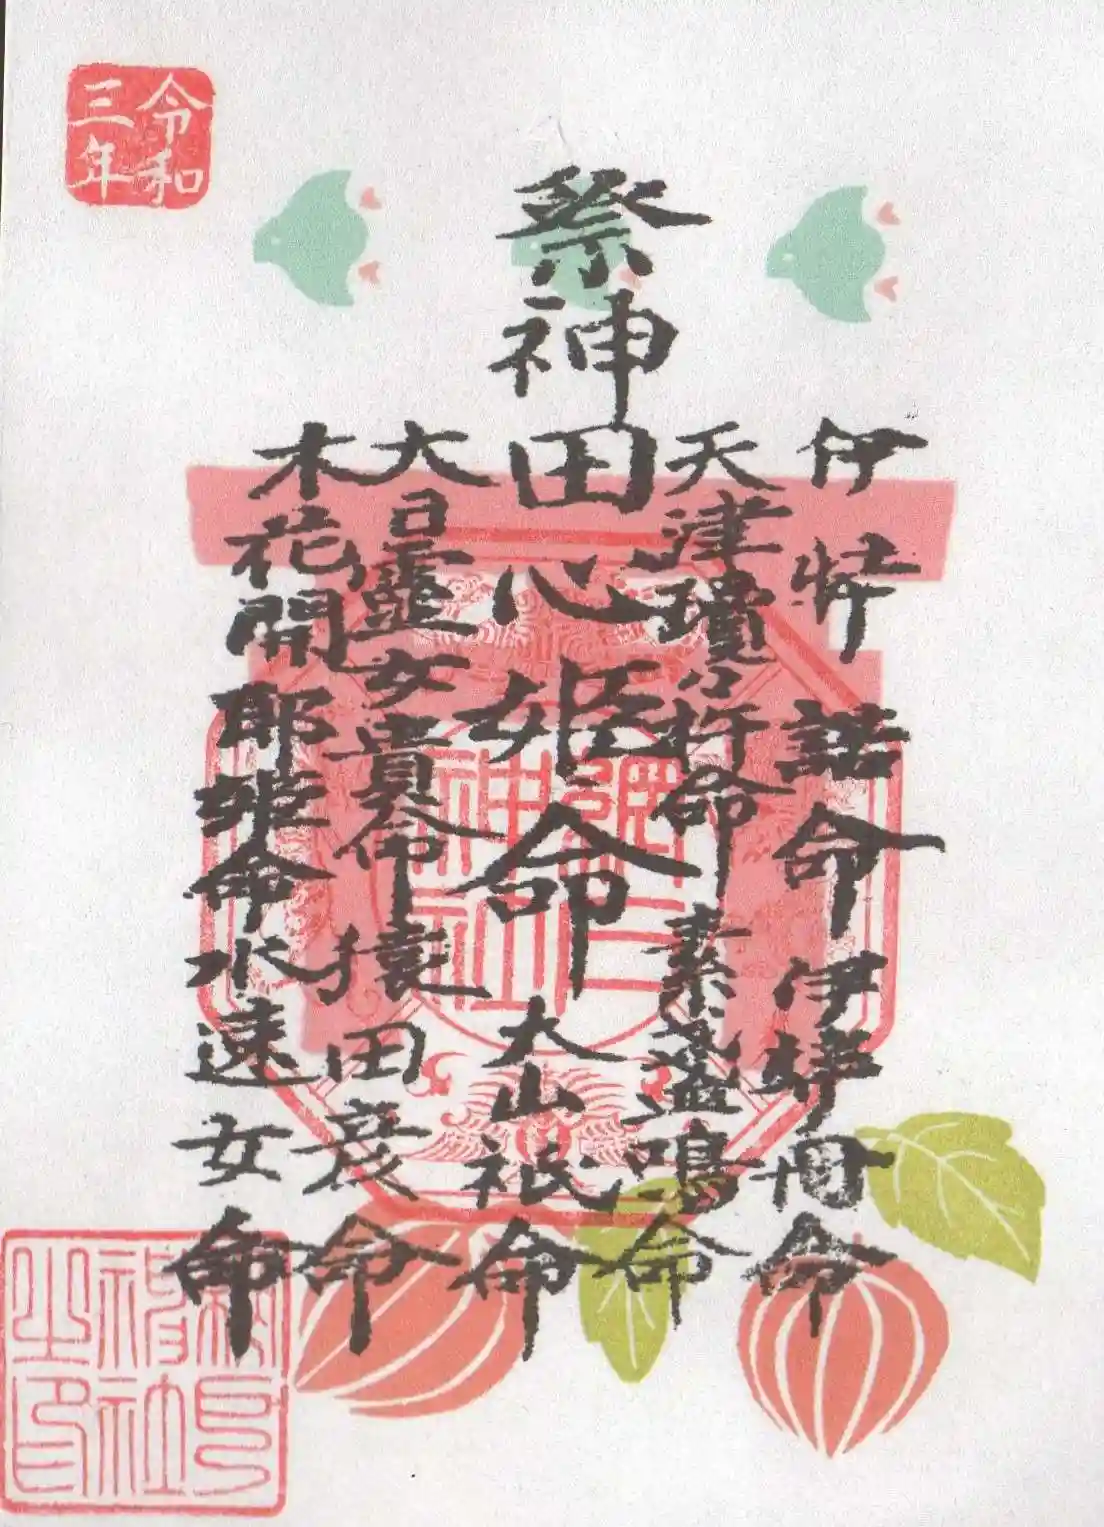 令和三年
祭神
伊弉諾命 伊弉冊命
天津瓊々杵命 素盞鳴命
田心姫命 大山祇命
大日孁女貴命 猿田彦命
木花開耶姫命 水速女命
網戸神社
神社之印